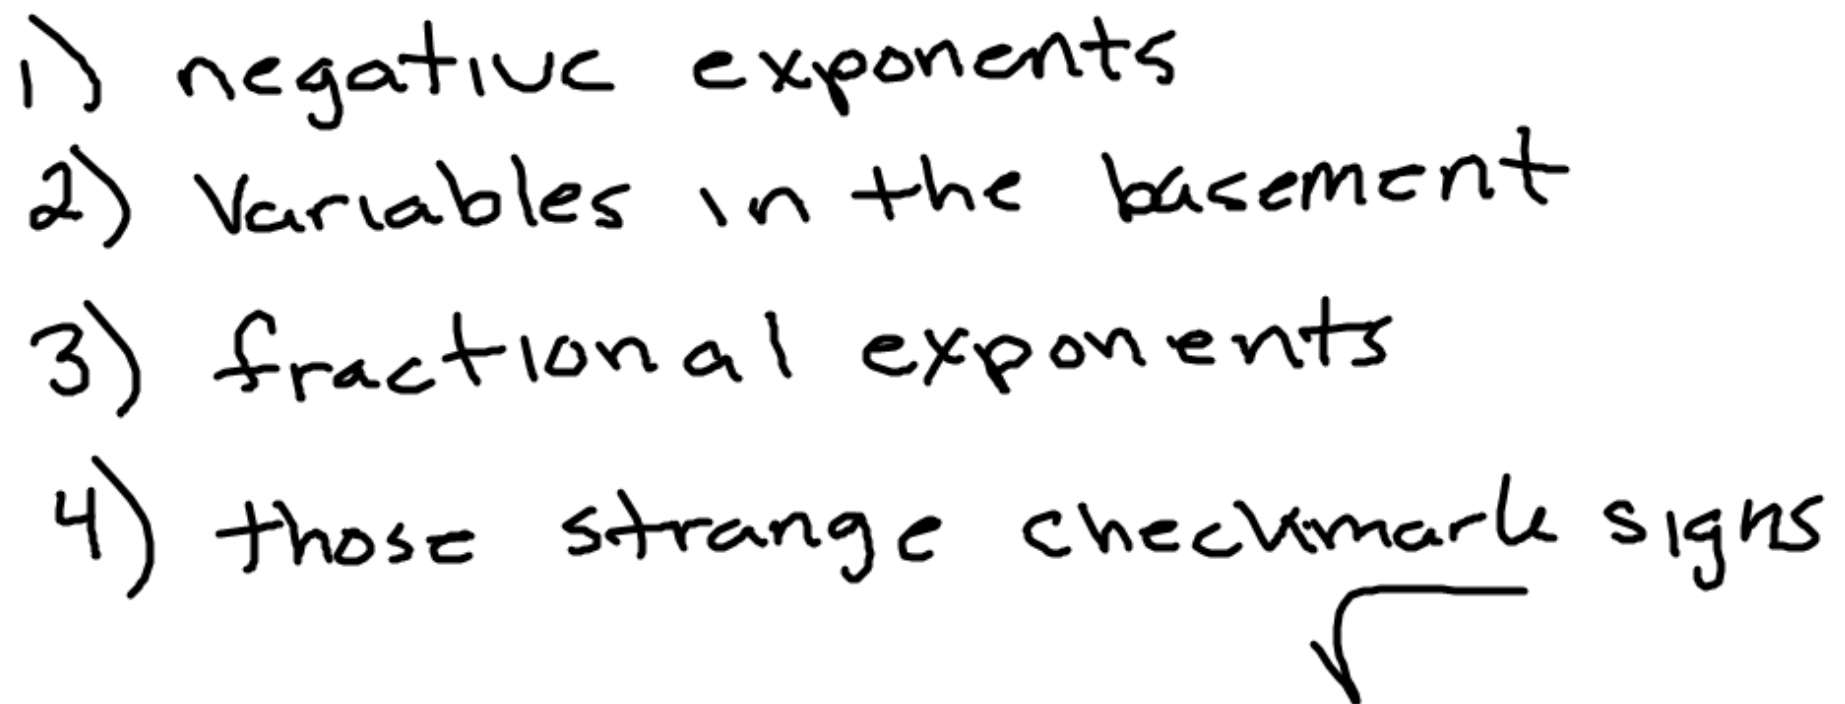 1) negative exponents
2) Variables in the basement
3) fractional exponents
4) those strange checkmark signs
√